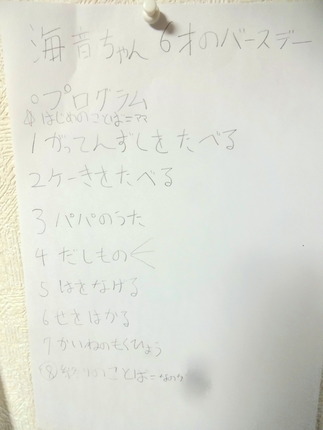 海音ちゃん 6才のバースデー
○プログラム
はじめのことば=??
1がってんずしをたべる
2ケーきをたべる
3パパのうた
4だしもの
5はさなげる
6せきはかる
7かいねのもくひょう
ことば=